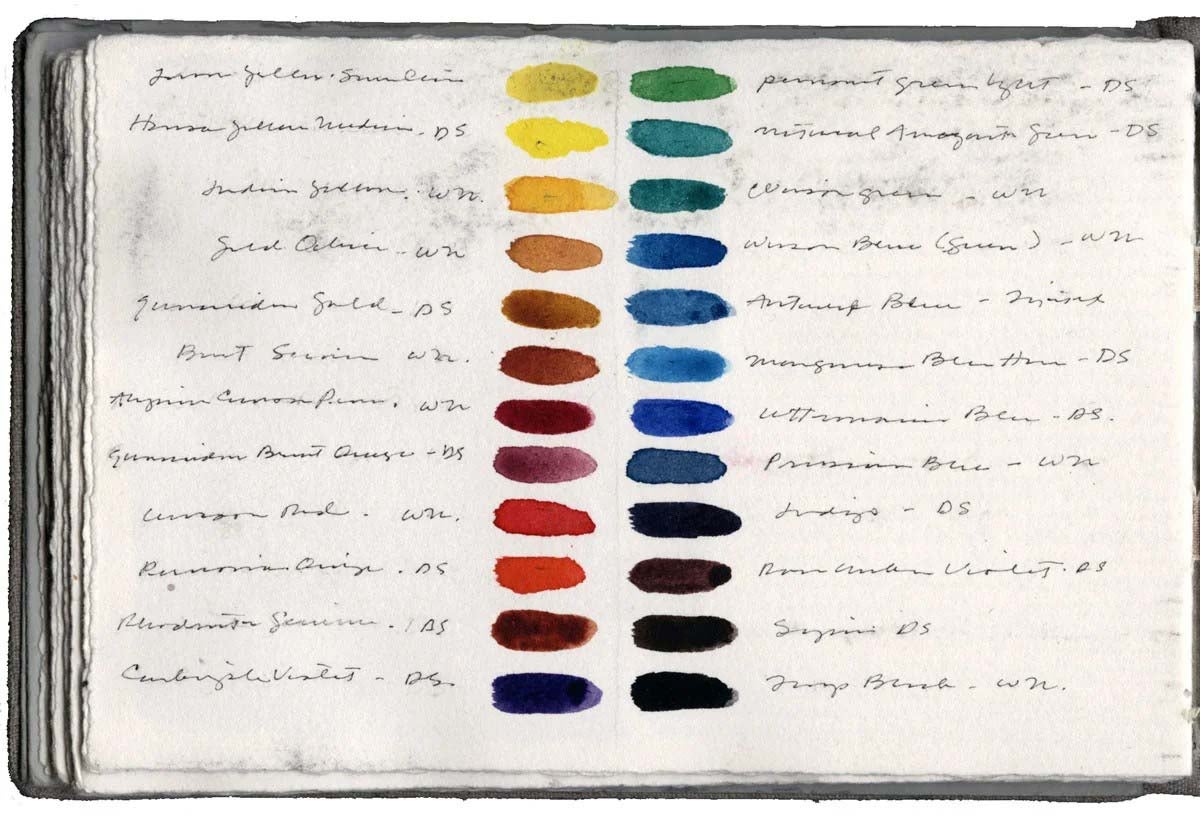 Hansa Yellow Medium - DS
Indian Yellow. WN.
Gold Ochre - WN
Quinacridone Gold - DS
Burnt Sienna WN.
Alizarin Crimson Perm. WN
Quinacridone Burnt Orange - DS
Winsor Red. WN.
Perinone Orange. DS
Rhodonite Genuine. DS
Carbazole Violet - DS
permanent green light - DS
natural Amazonite Green - DS
Winsor green - WN
Winsor Blue (Green) - WN
Antwerp Blue -
Manganese Blue Hue - DS
Ultramarine Blue - DS.
Prussian Blue - WN
Indigo - DS
Raw Umber Violet. DS
Sepia DS
Lamp Black - WN.